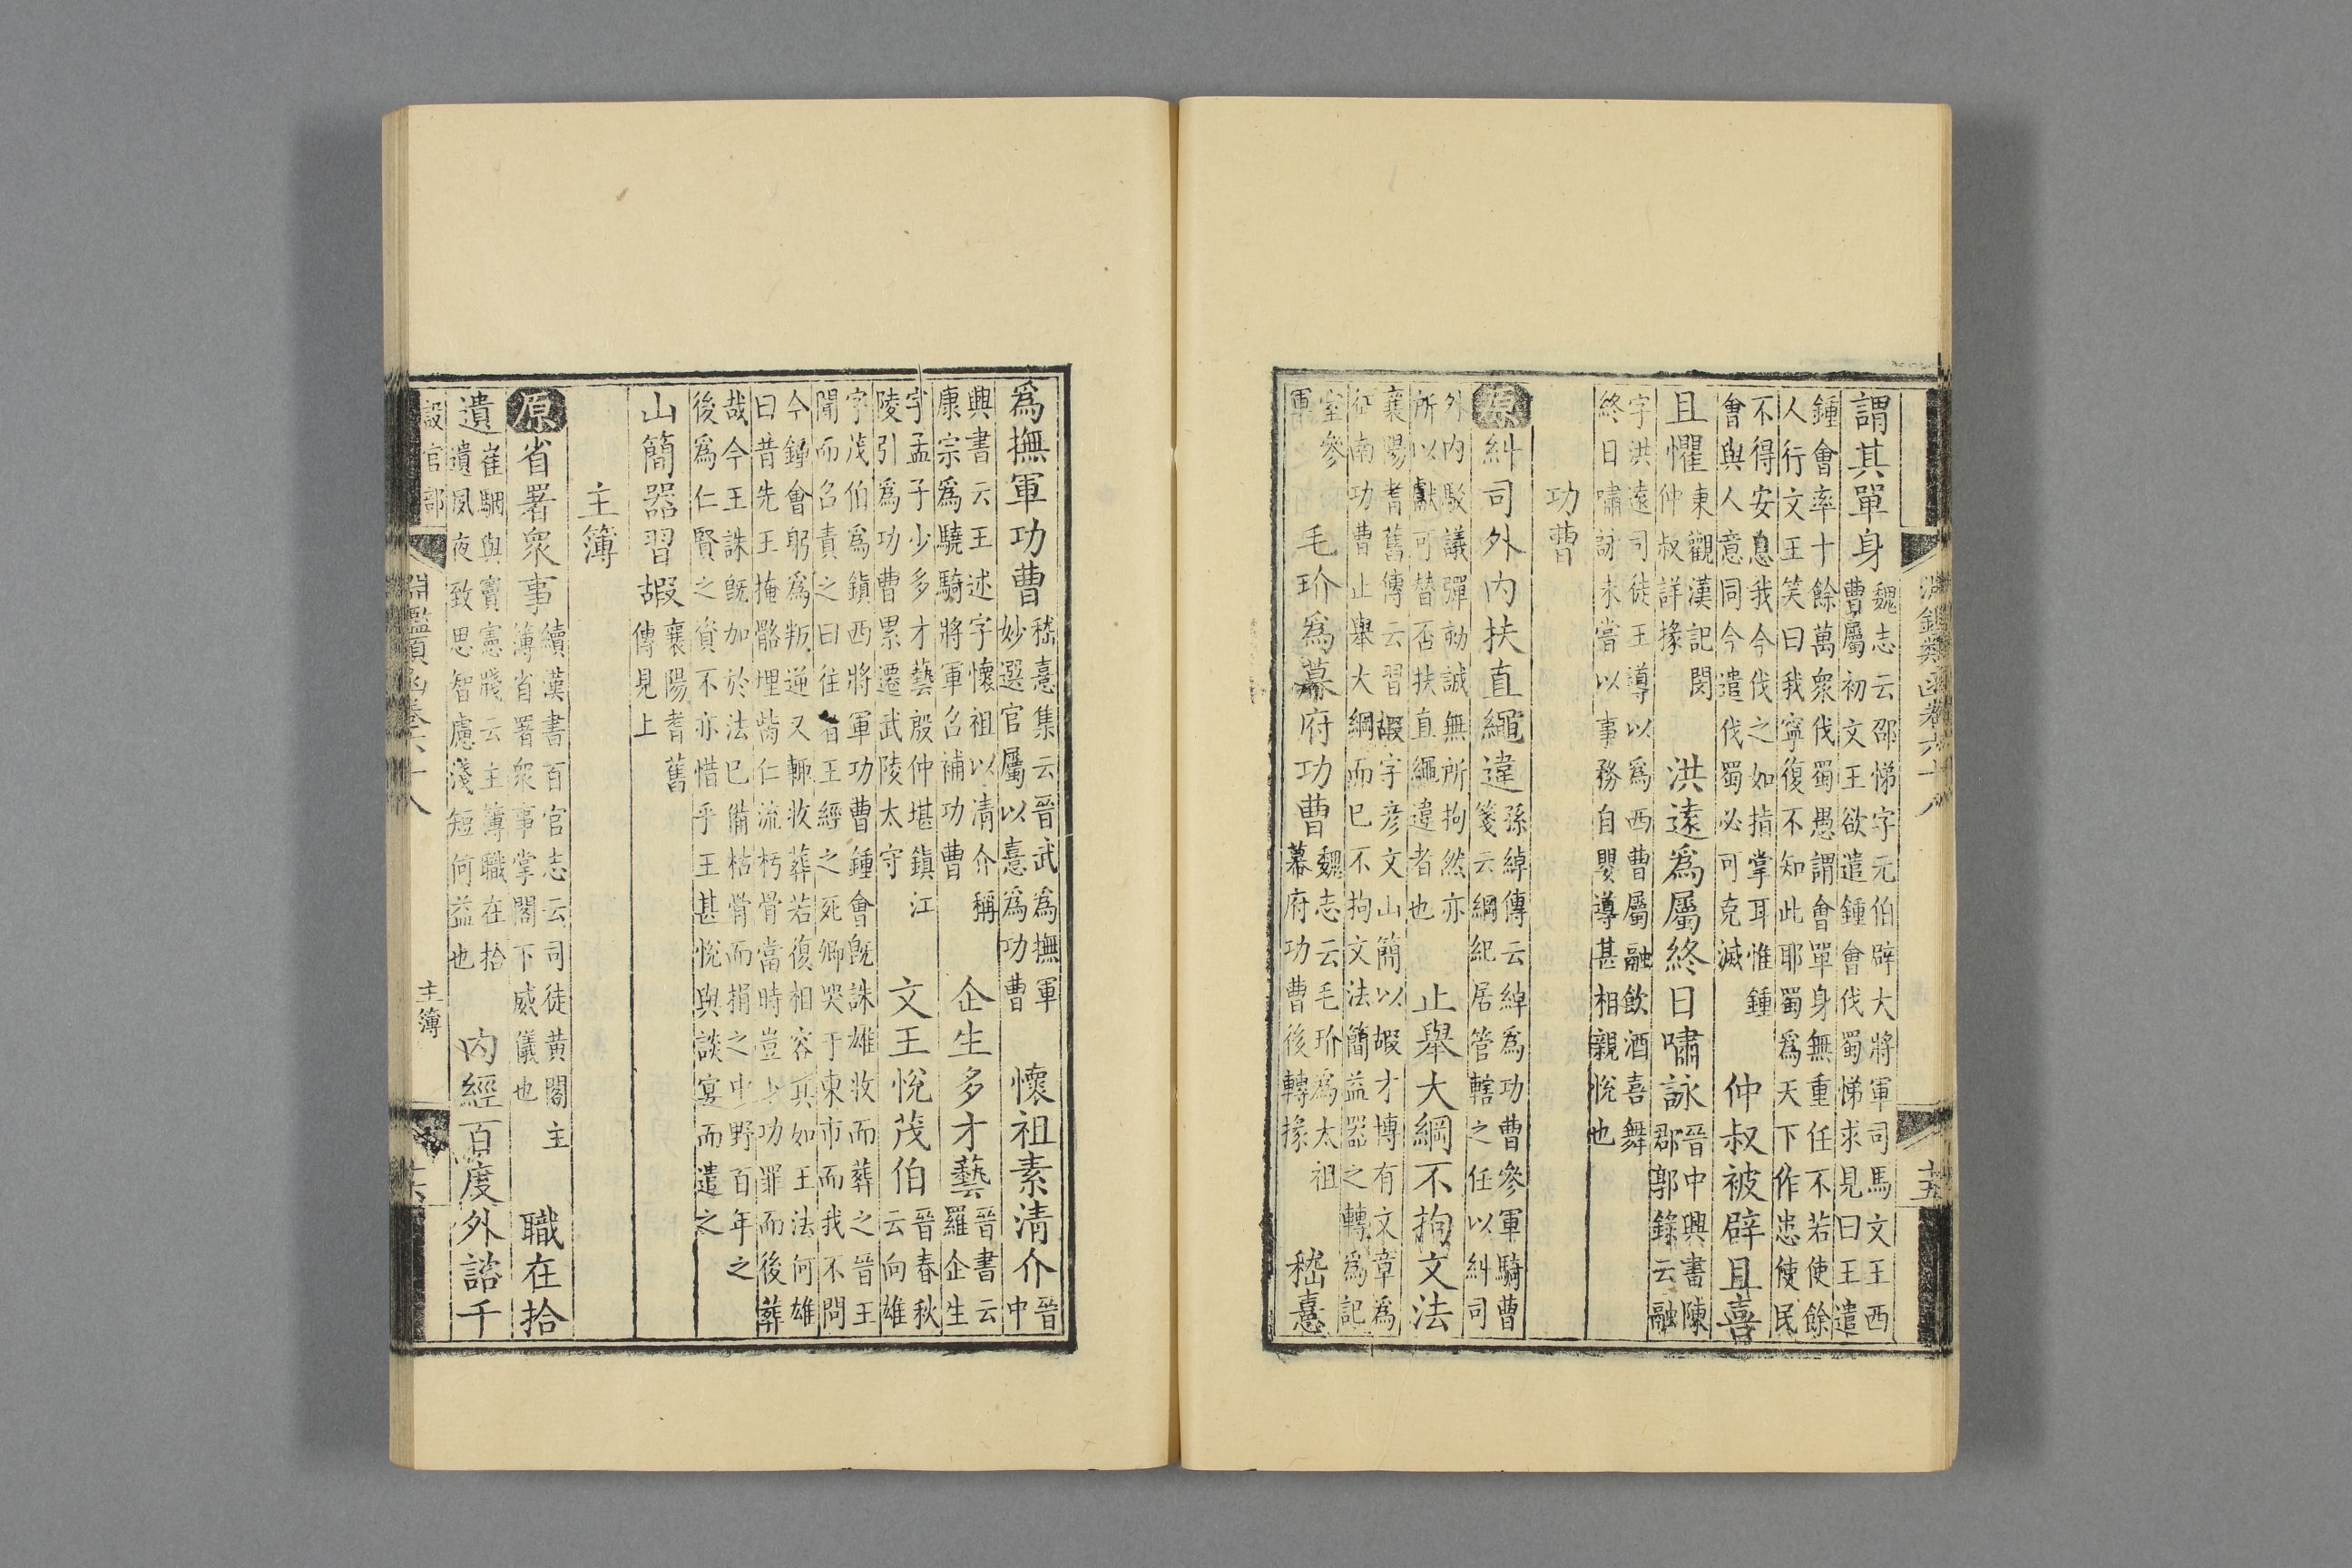 淵鑑類函卷六十八
十五
謂其單身
魏志云邵悌字元伯辟大將軍司馬文王西
曹屬初文王欲遣鍾會伐蜀悌求見曰王遣
鍾會率十餘萬衆伐蜀愚謂會單身無重任不若使餘
人行文王笑曰我寧復不知此耶蜀爲天下作患使民
不得安息我今伐之如指掌耳惟鍾
會與人意同今遣伐蜀必可克滅
仲叔被辟且喜
且懼
東觀漢記閔
仲叔詳掾
洪遠爲屬終日嘯詠
晉中興書陳
郡郭錄云融
字洪遠司徒王導以爲西曹屬融飲酒喜舞
終日嘯詠未嘗以事務自嬰導甚相親悅也
功曹
原糾司外內扶直繩違
孫綽傳云綽爲功曹參軍騎曹
箋云綱紀居管轄之任以糾司
外內駁議彈劾誠無所拘然亦
所以獻可替否扶直繩違者也
止舉大綱不拘文法
襄陽耆舊傳云習嘏字彥文山簡以嘏才博有文章爲
征南功曹止舉大綱而已不拘文法簡益器之轉爲記
室參
軍
毛玠爲幕府功曹
魏志云毛玠爲太祖
幕府功曹後轉掾
嵇憙
爲撫軍功曹
嵇憙集云晉武爲撫軍
妙選官屬以憙爲功曹
懷祖素清介
晉
中
興書云王述字懷祖以清介稱
康宗爲驍騎將軍召補功曹
企生多才藝
晉書云
羅企生
字孟子少多才藝殷仲堪鎮江
陵引爲功曹累遷武陵太守
文王悅茂伯
晉春秋
云向雄
字茂伯爲鎮西將軍功曹鍾會旣誅雄收而葬之晉王
聞而召責之曰往者王經之死卿哭于東市而我不問
今鍾會躬爲叛逆又輒收葬若復相容其如王法何雄
曰昔先王掩骼埋胔仁流朽骨當時豈卜功罪而後葬
哉今王誅旣加於法已備枯骨而捐之中野百年之
後爲仁賢之資不亦惜乎王甚悅與談宴而遣之
山簡器習嘏
襄陽耆舊
傳見上
主簿
原省署衆事
續漢書百官志云司徒黃閣主
簿省署衆事掌閣下威儀也
職在拾
遺
崔駰與竇憲牋云主簿職在拾
遺夙夜致思智慮淺短何益也
內經百度外諮千
設官部
淵鑑類函卷六十八
主簿
十六